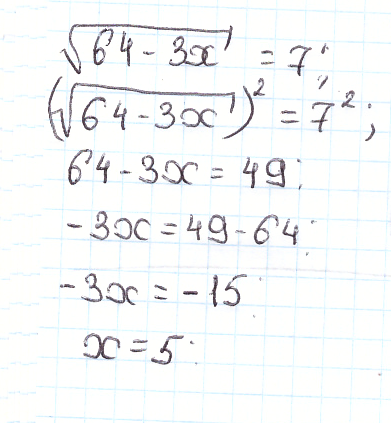 √(64 - 3x) = 7;
(√(64 - 3x))² = 7²;
64 - 3x = 49;
-3x = 49 - 64;
-3x = -15
x = 5.